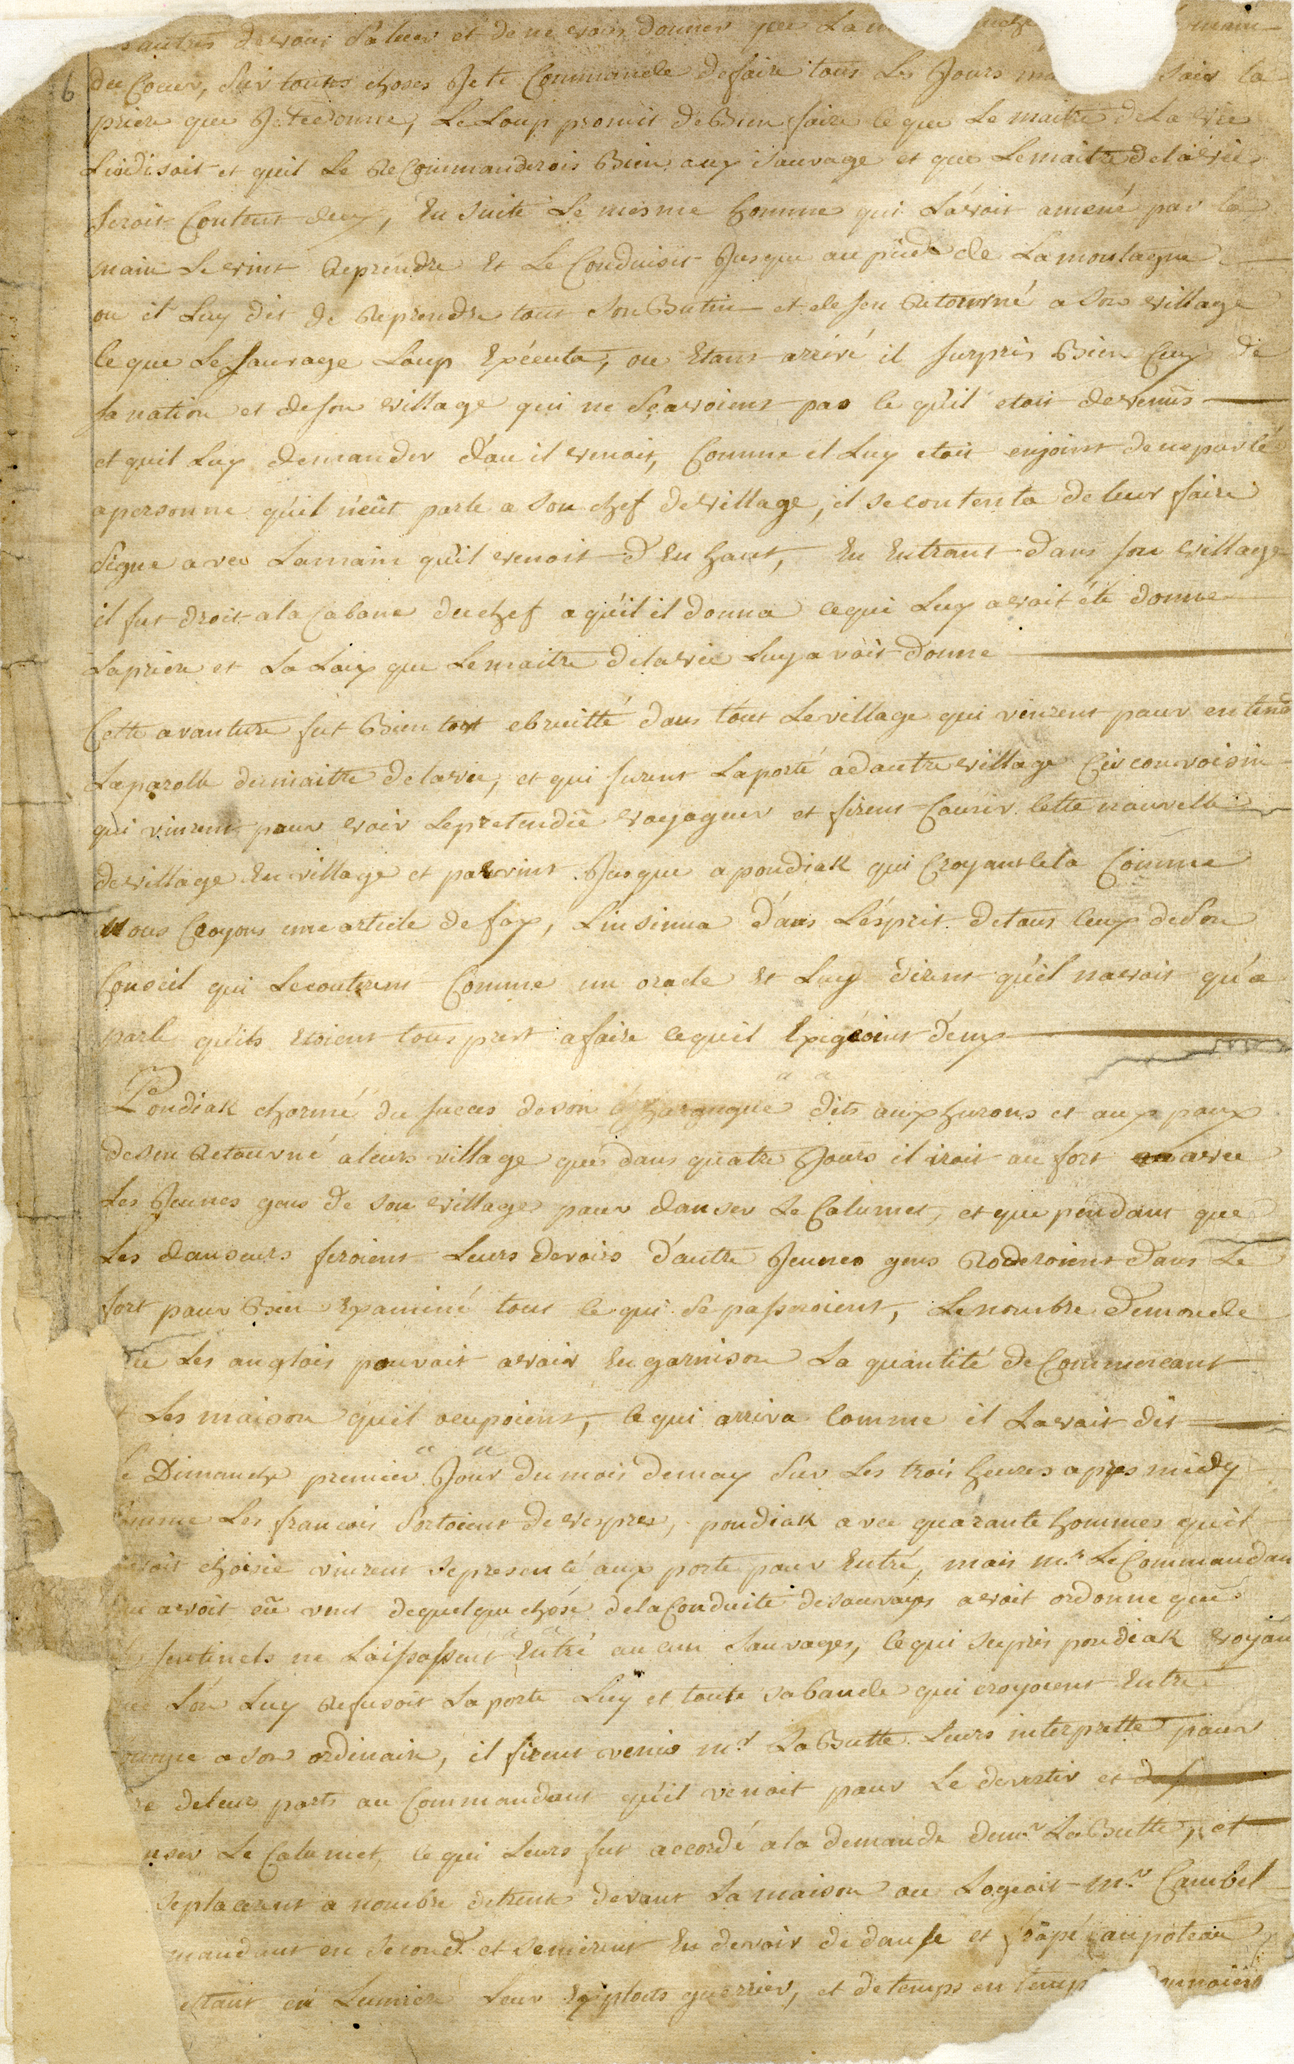 autres devoir Saluer et de ne vous donner que La
6
du Coeur, Sur toutes choses Je te Commande defaire tous Les Jours ma soir la
priere que Je tedonne, Le Loup promit de Bien faire ce que Le maitre dela vie
Luidisoit et quil Le ReCommanderois Bien aux Sauvage et que Lemaitre delavie
Seroit Content deux, En suite Le mesme homme qui L'avoit amené par la
main Le vint Reprendre Et Le Conduisit Jusque aupied de Lamontagne
ou il Luy dit de Reprendre tout Son Butin et desen Retourné a Son village
ce que Le Sauvage Loup Executa, ou Etant arrivé il surpris Bien Ceux de
sa nation et deson village qui ne Sçavoient pas ce qu'il etoit devenus
et quil Luy demander d'ou il venoit, Comme il Luy etoit enjoint deneparlé
apersonne qu'il n'eût parle a Son chef devillage, il secontenta deleur faire
Signe avec Lamain qu'il venoit d'En haut, En Entrant dans son village
il fut droit ala Cabane duchef aqu'il il donna cequi Luy avoit été donne
Lapriere et La Loix que Lemaitre delavie Luy avoit donne
Cette avanture fut Bientost ebruitté dans tout Levillage qui vinrent pour entend
Laparolle dumaitre delavie, et qui furent Laporté adautre village Circonvoisin
qui vinrent pour voir Lepretendüe voyageur et firent Courir cette nouvelle
devillage En village et parvint Jusque apondiak qui Croyant cela Comme
Nous Croyons une article de foy, L'insinua dans L'esprit detous ceux deson
Conseil qui Lecouterent Comme un oracle et Luy dirent qu'il navoit qu'a
parle qu'ils Etoient tous prest afaire cequil Exigeoint d'eux
Pondiak charmé du succes deson harangue dits aux hurons et aux poux
desen Retourné aleurs village que dans quatre Jours il iroit au fort avec
Les Jeunes gens de Son village pour danser Le Calumet, et que pendant que
Les danseurs feroient Leurs devoirs d'autre Jeunes gens Roderoient dans Le
fort pour Bien Examiné tout ce qui Se passeroient, Lenombre demonde
que Les anglois pouvoit avoir En garnison La quantité deCommercant
et Les maison quil ocupoient, cequi arriva comme il Lavoit dit
Le Dimanche premier Jour dumois demay Sur Les trois heures apres midy
Comme Les francois Sortoient devespres, pondiak avec quarante hommes quil
avoit choisie vinrent Sepresenté aux porte pour Entré, mais mr. LeCommandan
qui avoit eû vent dequelque chose delaConduite desauvages avoit ordonne que
les sentinels ne Laissassent Entré aucun Sauvages, cequi surpris pondiak voyan
que Lon Luy Refusoit Laporte Luy et toute sabande qui croyoient Entre
comme a son ordinaire, il firent venir mr. LaButte Leurs interprette pour
dire deleurs parts au Commandant qu'il venoit pour Le divertir et
danser Le Calumet, ce qui Leurs fut accordé ala demande demr. LaButte, et
seplacerent a nombre detrente devant La maison ou Logeoit mr. Cambel
mandant en Second. et semirent En devoir dedanse et frapé aupoteau
ettant en Lumiere Leur Exploits guerrier, et detemps en temps